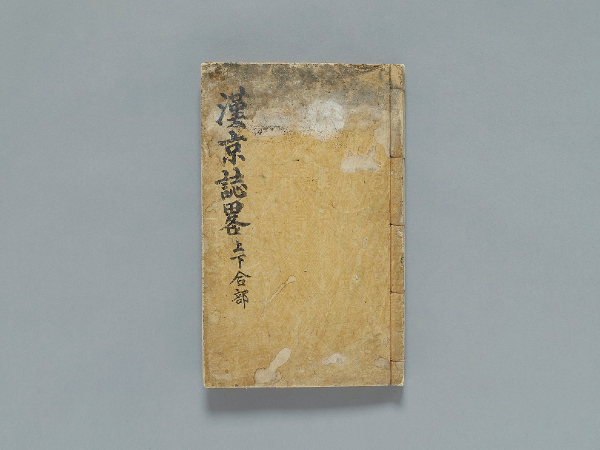 漢京誌畧
上下合部